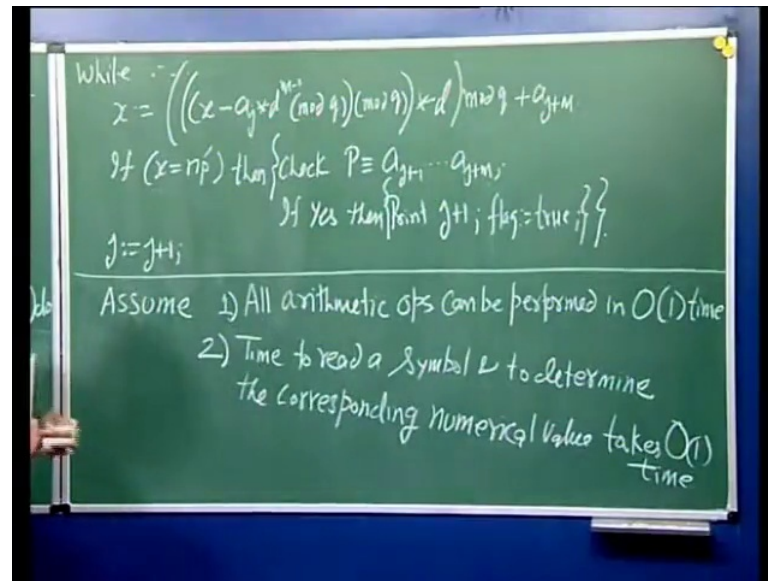 While :-
x = (((x - a_j * d^{m-1} (mod q)) (mod q)) * d) mod q + a_{j+m}
If (x = np') then {Check P ≡ a_{j+1} ... a_{j+m};
If Yes then {Print j+1; flag := true;}}.
j := j+1;
Assume 1) All arithmetic ops can be performed in O(1) time
2) Time to read a symbol & to determine
the corresponding numerical value takes O(1)
time